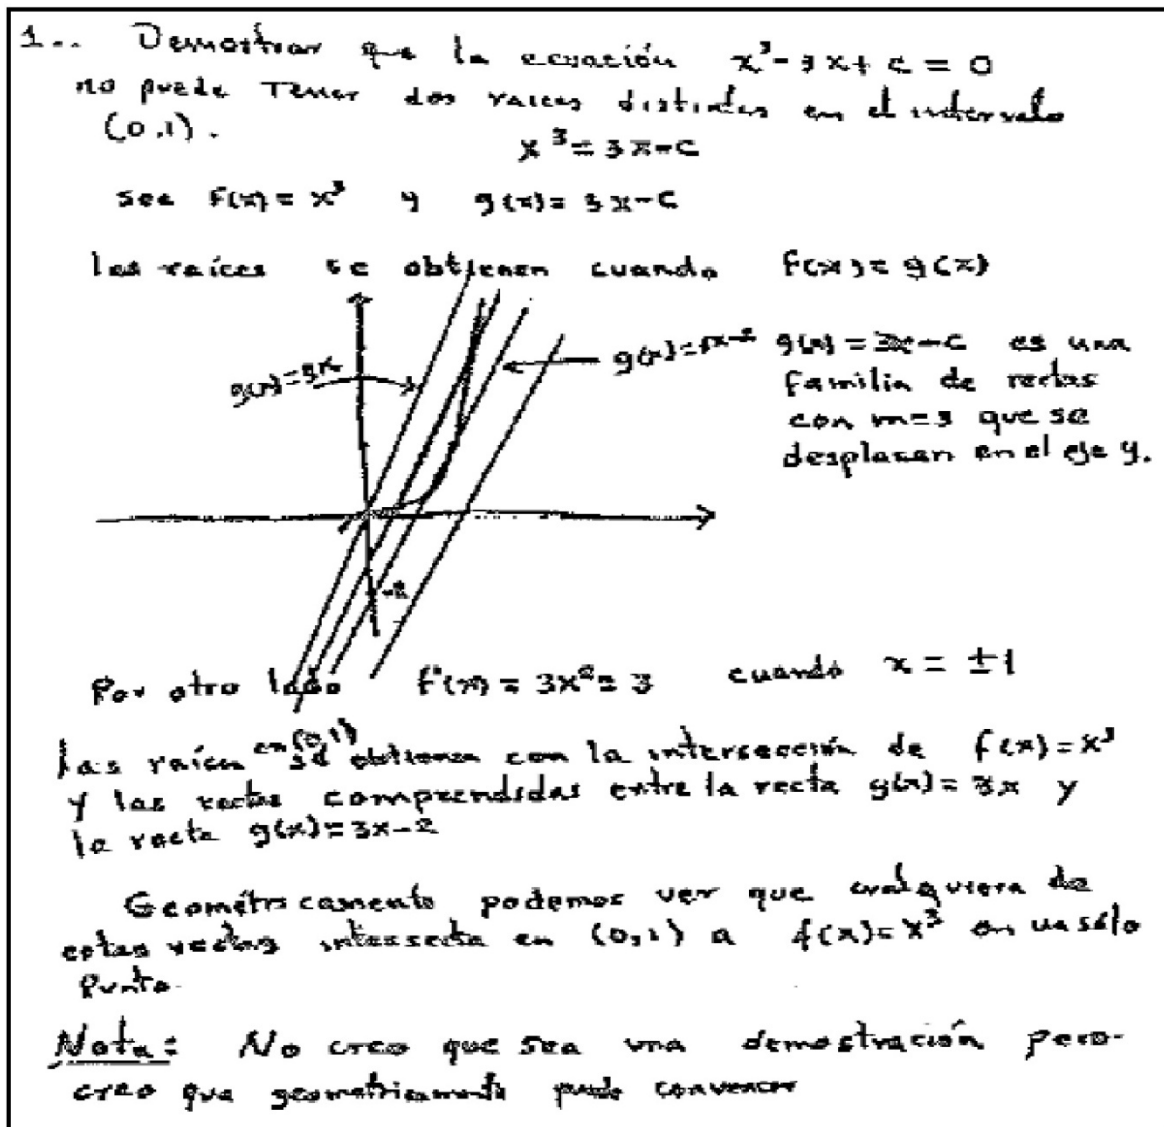 1.. Demostrar que la ecuación x³-3x+c=0
no puede Tener dos raíces distintas en el intervalo
(0,1).
x³=3x-c
sea f(x)=x³ y g(x)=3x-c
las raíces se obtienen cuando f(x)=g(x)
g(x)=3x
g(x)=3x-2
g(x)=3x-c es una
familia de rectas
con m=3 que se
desplazan en el eje y.
-2
Por otro lado f'(x)=3x²=3 cuando x=±1
las raíces en (0,1) se obtienen con la intersección de f(x)=x³
y las rectas comprendidas entre la recta g(x)=3x y
la recta g(x)=3x-2
Geométricamente podemos ver que cualquiera de
estas rectas intersecta en (0,1) a f(x)=x³ en un sólo
Punto.
Nota: No creo que sea una demostración pero
creo que geometricamente puede convencer